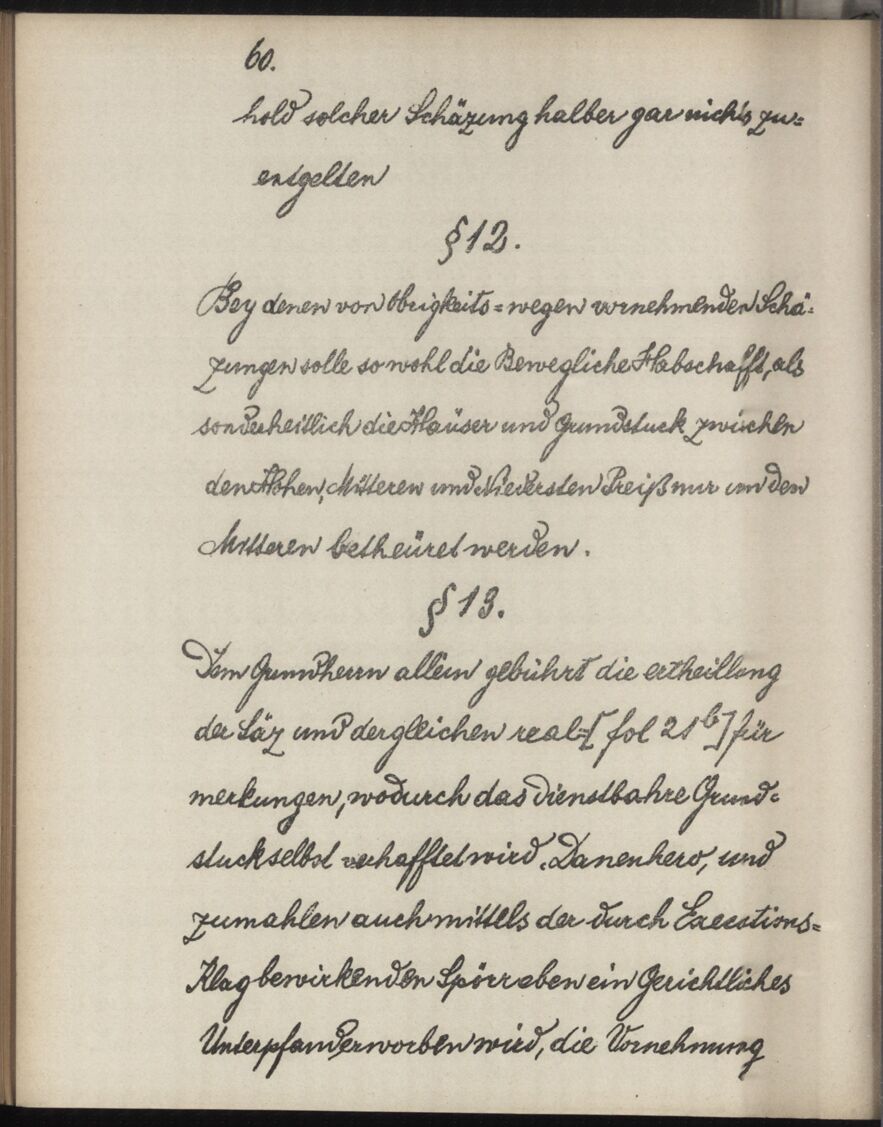 60.
hold solcher Schäzung halber gar nichts zu=
entgelten
§ 12.
Bey denen von Obrigkeits=wegen vornehmenden Schä=
zungen solle sowohl die Bewegliche Habschafft, als
sonderheitlich die Häuser und Grundstuck zwischen
den Hohen, Mitteren und Niedersten Preiß nur um den
Mitteren betheüret werden.
§ 13.
Dem Grundherrn allein gebührt die ertheillung
der Säz und dergleichen real=[fol 21b] für
merkungen, wodurch das dienstbahre Grund=
stuck selbst verhafftet wird. Danenhero, und
zumahlen auch mittels der durch Executions=
Klag bewirkenden Spörr eben ein Gerichtliches
Unterpfand erworben wird, die Vornehmung